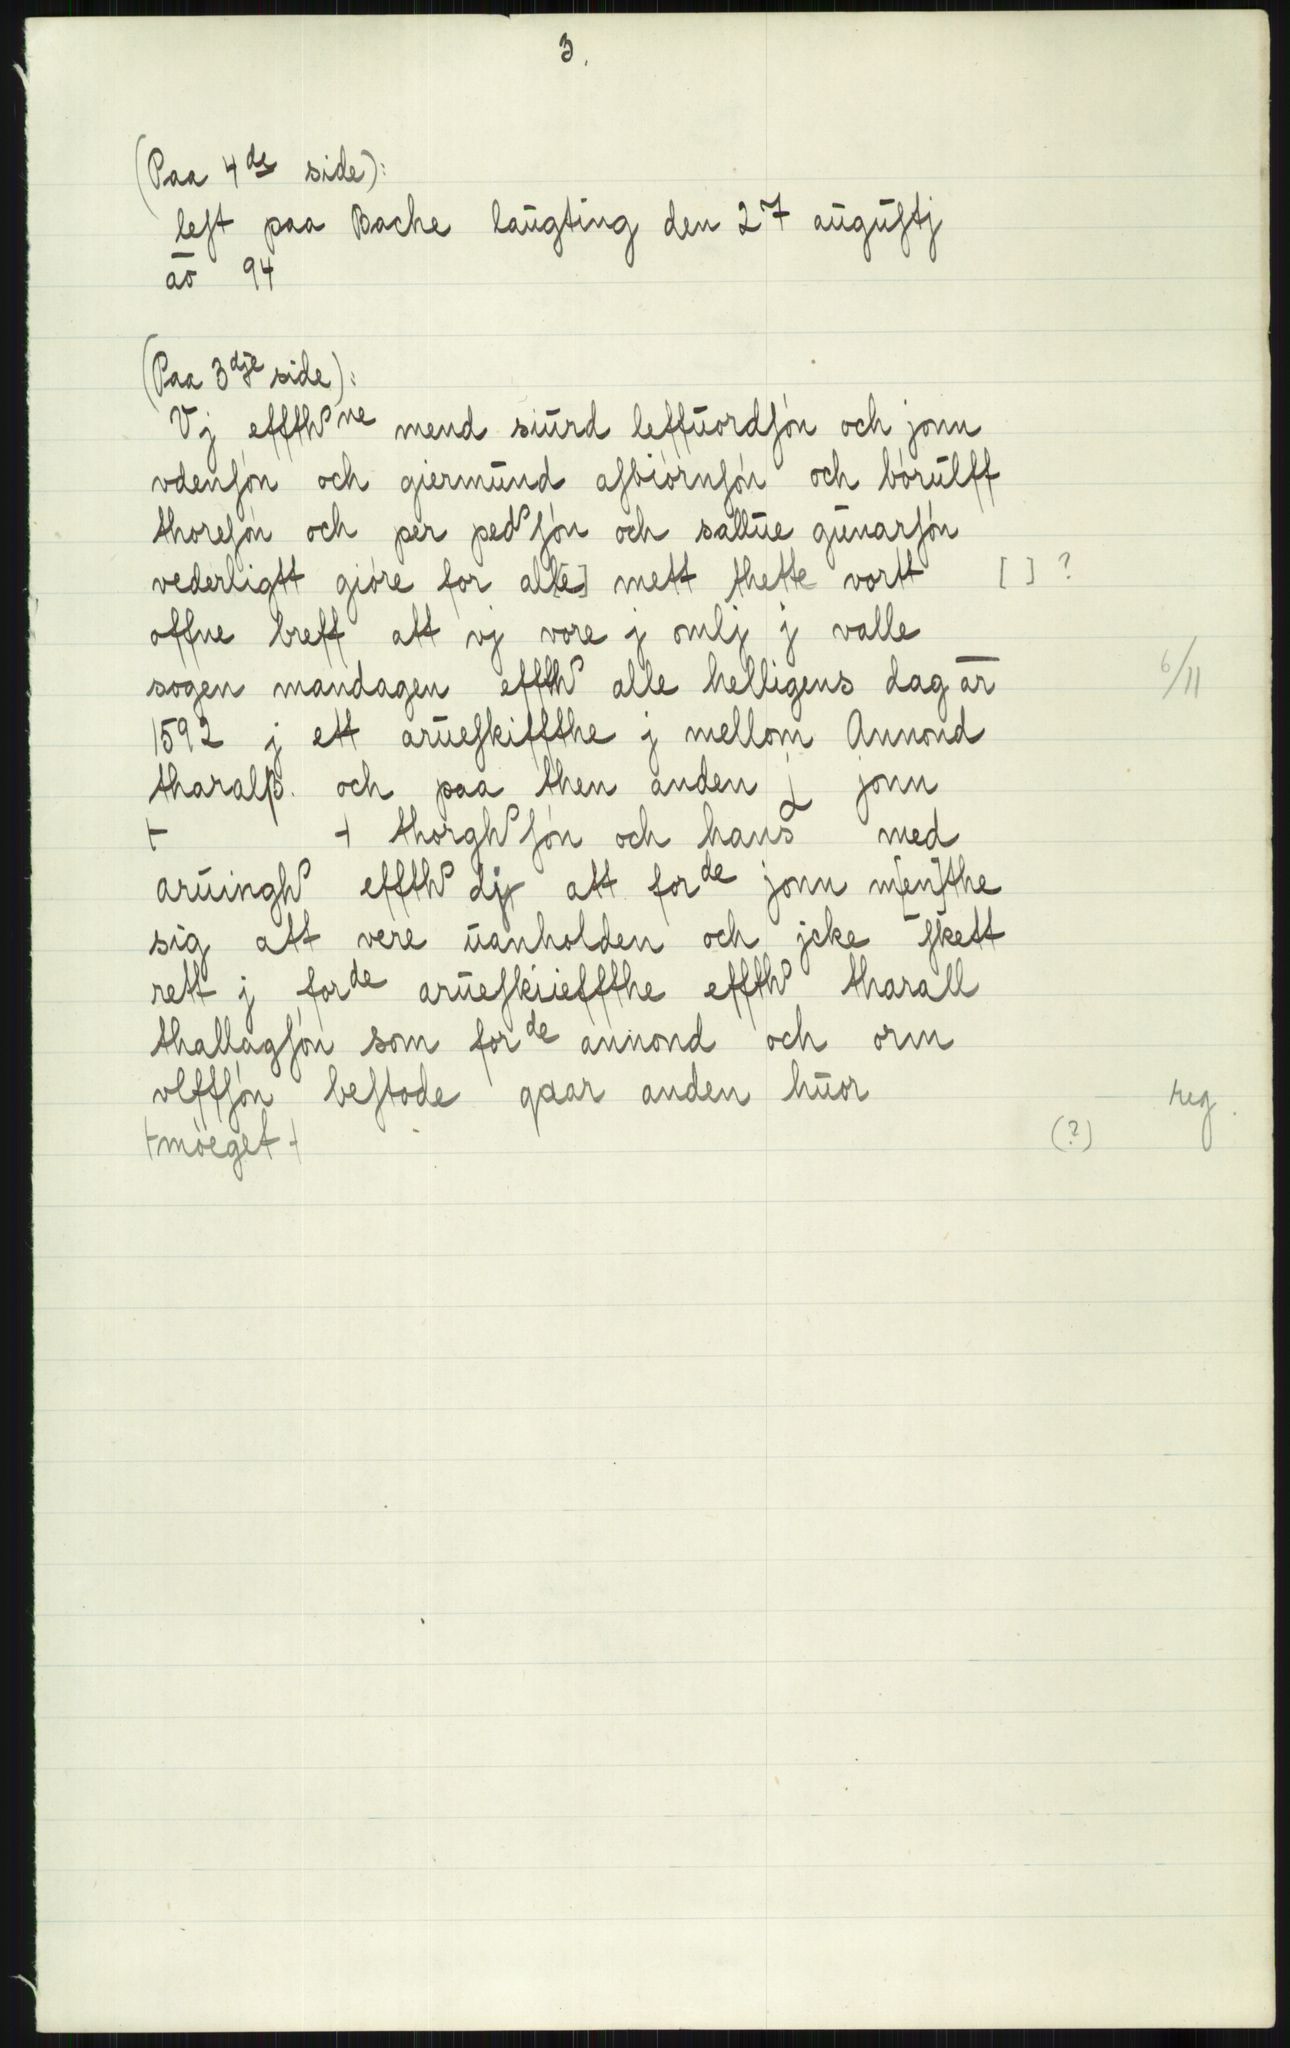 3.
(Paa 4de side):
leſt paa Bache laugting den 27 auguſtj
ar 94
(Paa 3dje side):
Vj effthne mend siurd leffuordſøn och jonn
vdenſøn och giermund aſbiørnſøn och børulff
thoreſøn och per pedſøn och sallue gunarſøn
vederligtt giøre for alle[e] mett thette vortt [ ] ?
offne breff att vj vore j omlj j valle
sogen mandagen effth alle helligens dag ar 6/11
1592 j ett arueſkiffthe j mellom Annond
tharalſſ. och paa then anden j jonn
thorghſøn och hans med
aruingh effth dj att forde jonn m[en]the
sig att vere uanholden och jcke ſkett
rett j forde arueſkiieffthe effth tharall
thallagſøn som forde annond och orm
vlffſøn beſtode quar anden huor reg.
møeget (?)